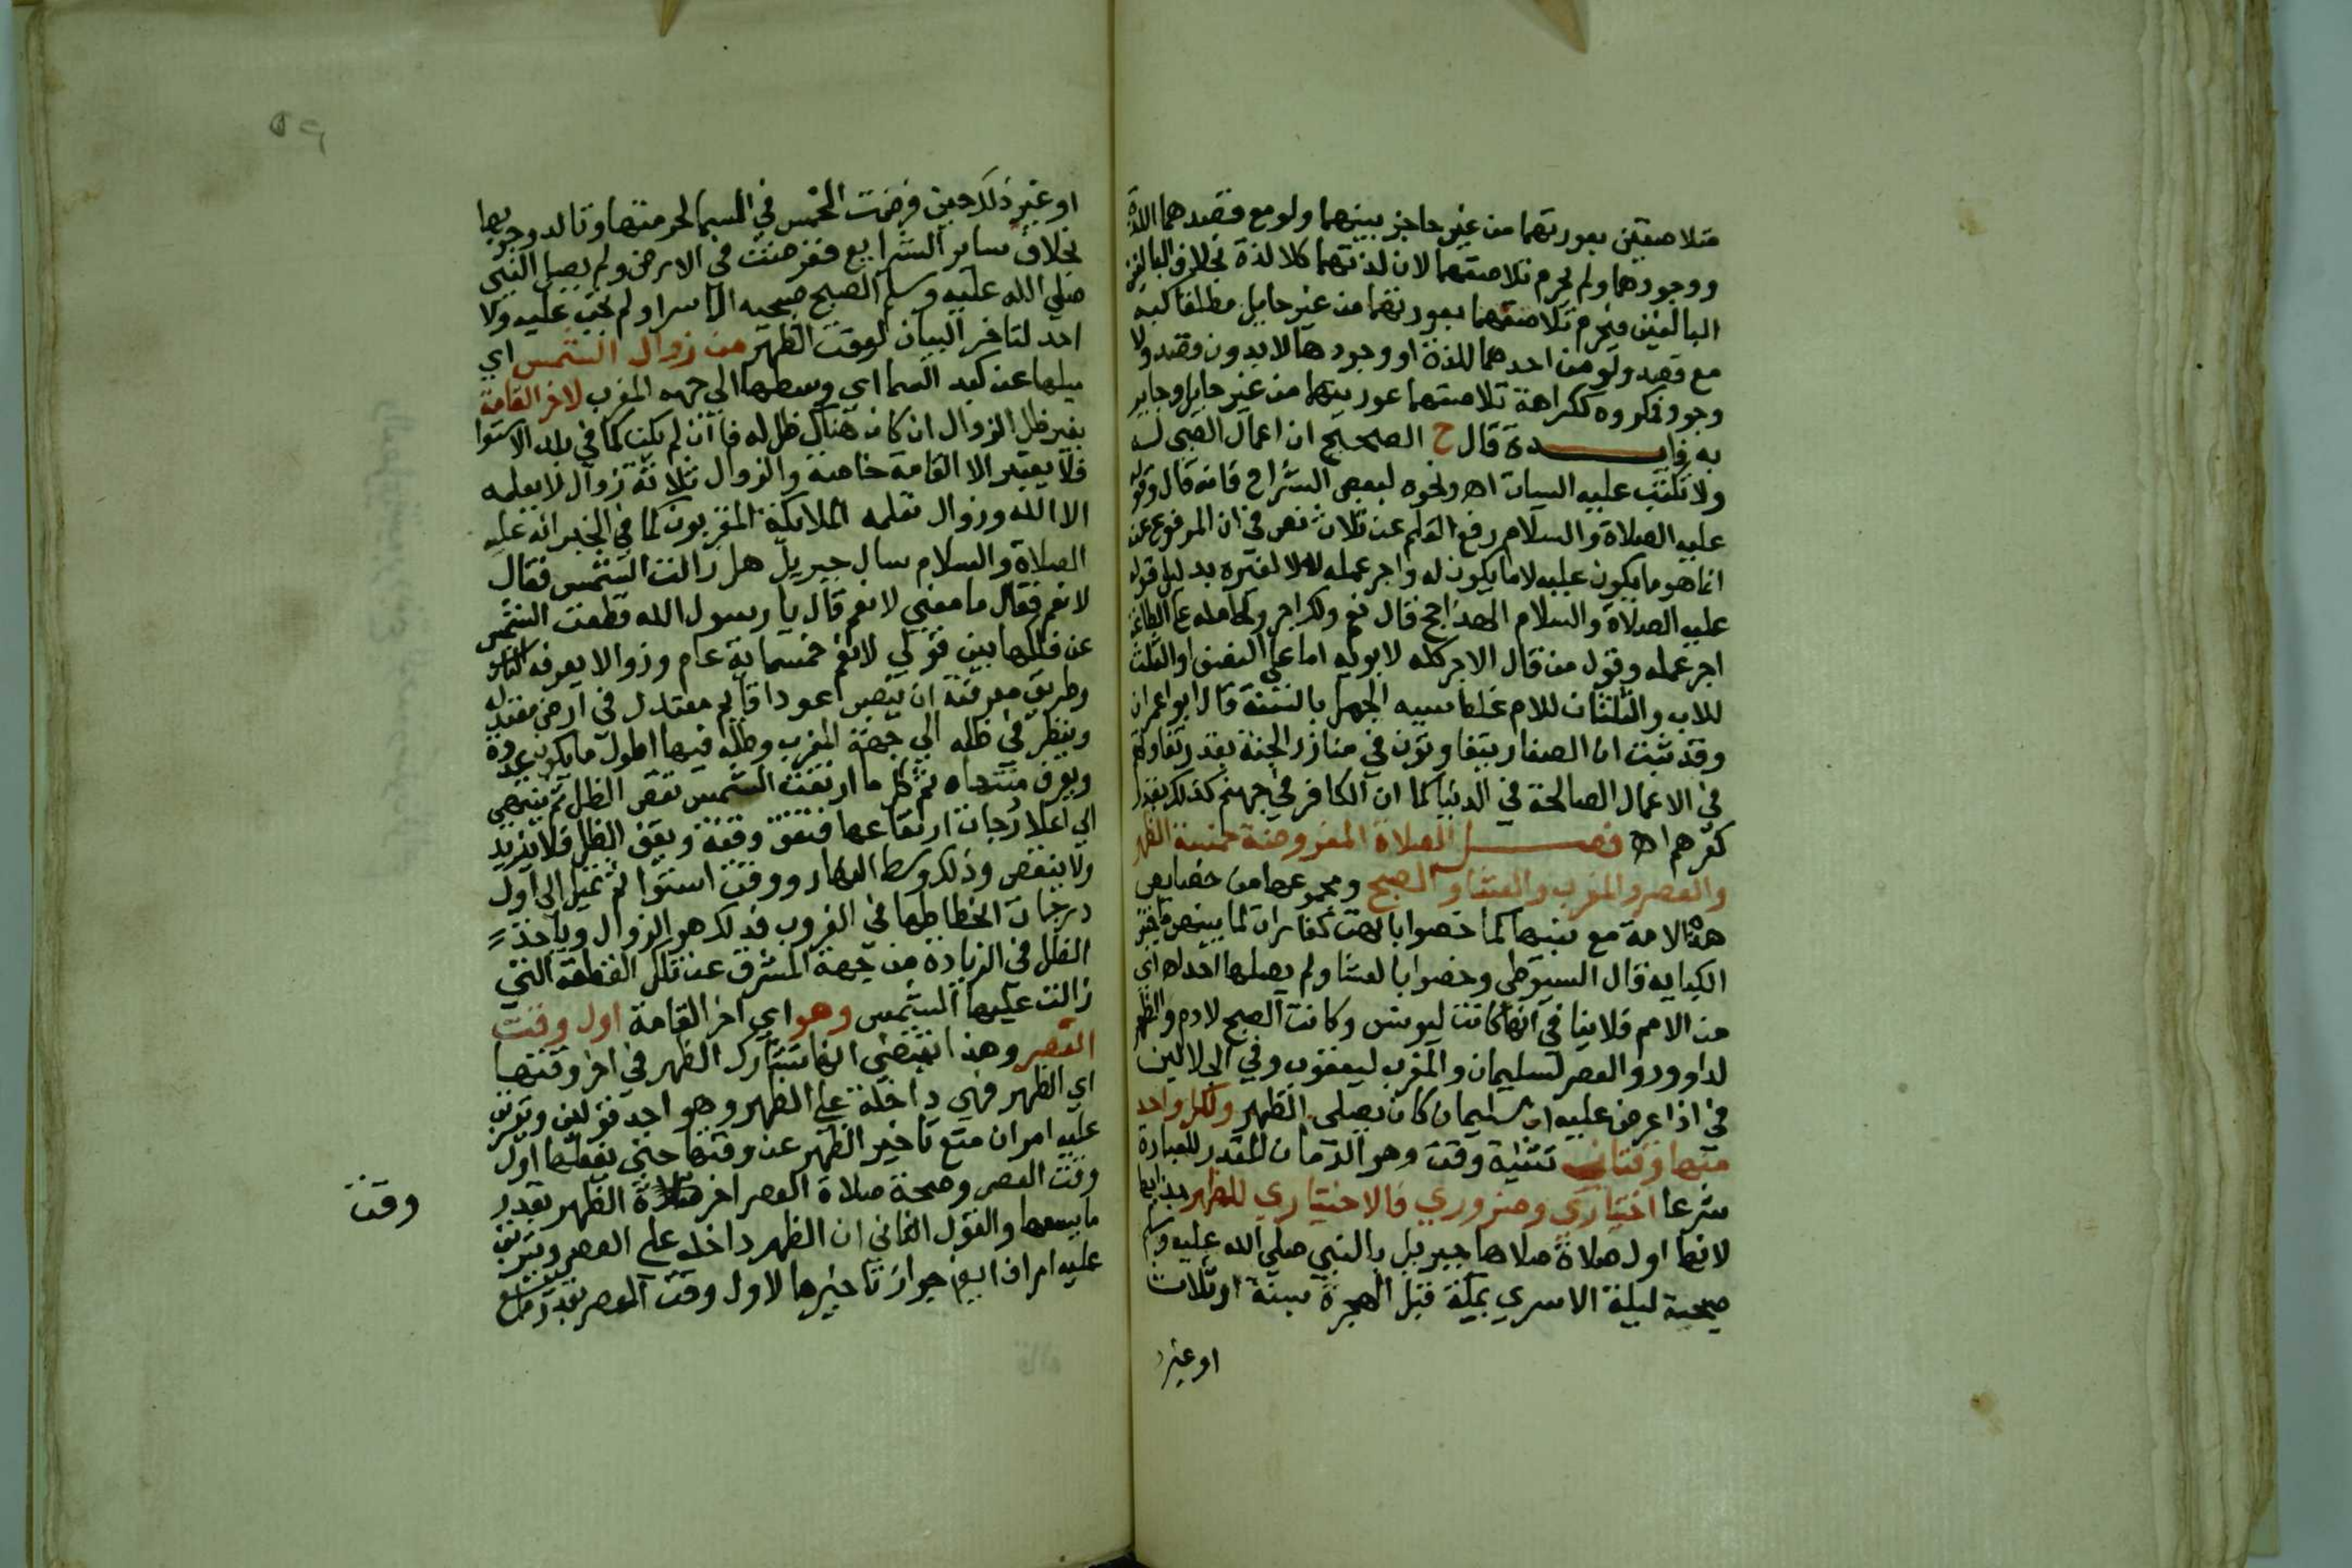 متلاصقين بعورتهما من غير حاجز بينهما ولو مع قصدهما اللذة
ووجودهما ولم يحرم تلاصقهما لان لذتهما كلا لذة بخلاف البالغ
البالغين فيحرم تلاصقهما بعورتهما من غير حايل مطلقا كبه
مع قصد ولو من احدهما للذة او وجودها لا بدون قصد ولا
وجود فمكروه ككراهة تلاصقهما عورتيهما من غير حايل وحاير
به فايـــدة قال ح الصحيح ان اعمال الصبي له
ولا تكتب عليه السيات اه ونحوه لبعض الشراح فانه قال وقوله
عليه الصلاة والسلام رفع القلم عن ثلاث نص في ان المرفوع عن
انما هو ما يكون عليه لا ما يكون له واجر عمله له لا لغيره بدليل قوله
عليه الصلاة والسلام الهذا حج قال نعم ولك اجر وكامله علي الطاعة
اجر عمله وقول من قال الاجر كله لابويه اما علي النصف او الثلث
للاب والثلثان للام غلط سببه الجهل بالسنة قال ابو اعمران
وقد ثبت ان الصغار يتفاوتون في منازل الجنة بقدر تفاوتهم
في الاعمال الصالحة في الدنيا كما ان الكافر في جهنم كذلك بقدر
كفرهم اه فصــل الصلاة المفروضة خمسة الظهر
والعصر والمغرب والعشا والصبح ومجموعها من خصايص
هذه الامة مع نبيها كما خصوا بانهن كفارات لما بينهن ما تجنب
الكباير قال السيوطي وخصوا بالعشا ولم يصلها احد اه اي
من الامم فلا ينافي انها كانت ليونس وكانت الصبح لادم والظهر
لداوود والعصر لسليمان والمغرب ليعقوب وفي الجلالين
في اذ اعرض عليه ان سليمان كان يصلي الظهر ولكل واحد
منها وقتان تثنية وقت وهو الزمان المقدر للعبادة
شرعا اختياري وضروري فالاختياري للظهر بدا بها
لانها اول صلاة صلاها جبريل بالنبي صلي الله عليه وسلم
صحبة ليلة الاسري بمكة قبل الهجرة بسنة او ثلاث
او غير
٥٩
او غير ذلك حين فرضت الخمس في السما لحرمتها وتاكد وجوبها
بخلاف ساير الشرايع ففرضت في الارض ولم يصل النبي
صلي الله عليه وسلم الصبح صبحه الاسرا ولم تجب عليه ولا
احد لتاخر البيان لوقت الظهر من زوال الشمس اي
ميلها عن كبد السما اي وسطها الي جهه المغرب لاخر القامة
بغير ظل الزوال ان كان هناك ظل له فان لم يكن كما في بلد الاستوا
فلا يعتبر الا القامة خاصة والزوال ثلاثة زوال لا يعلمه
الا الله وزوال تعلمه الملايكة المقربون كما في الخبر انه عليه
الصلاة والسلام سال جبريل هل زالت الشمس فقال
لا نعم فقال ما معني لا نعم قال يا رسول الله قطعت الشمس
عن فلكها بين قولي لا نعم خمسماية عام وزوالا يعرفه الناس
وطريق معرفته ان ينصب اعودا قايم معتدل في ارض معتدلة
وينظر في ظله الي جهة المغرب وظله فيها اطول ما يكون غدوة
ويعرف منتهاه ثم كل ما ارتفعت الشمس نقص الظل ثم ينتهي
الي اعلا درجات ارتفاعها فتقف وقفة ويقف الظل فلا يزيد
ولا ينقص وذلك وسط النهار ووقت استوا ثم تميل الي اول
درجات انحطاطها في الغروب فذلك هو الزوال وياخذ
الظل في الزيادة من جهة المشرق عن تلك القطعة التي
زالت عليها الشمس وهو اي اخر القامة اول وقت
العصر وهذا يقتضي انها تشارك الظهر في اخر وقتها
اي الظهر فهي داخلة علي الظهر وهو احد قولين وترتب
عليه امران منع تاخير الظهر عن وقتها حتي يفعلها اول
وقت العصر وصحة صلاة العصر اخر صلاة الظهر بقدر
ما يسعها والقول الثاني ان الظهر داخله علي العصر وترتب
عليه امران ايضا جواز تاخيرها لاول وقت العصر بقدر ما يسع
وقت